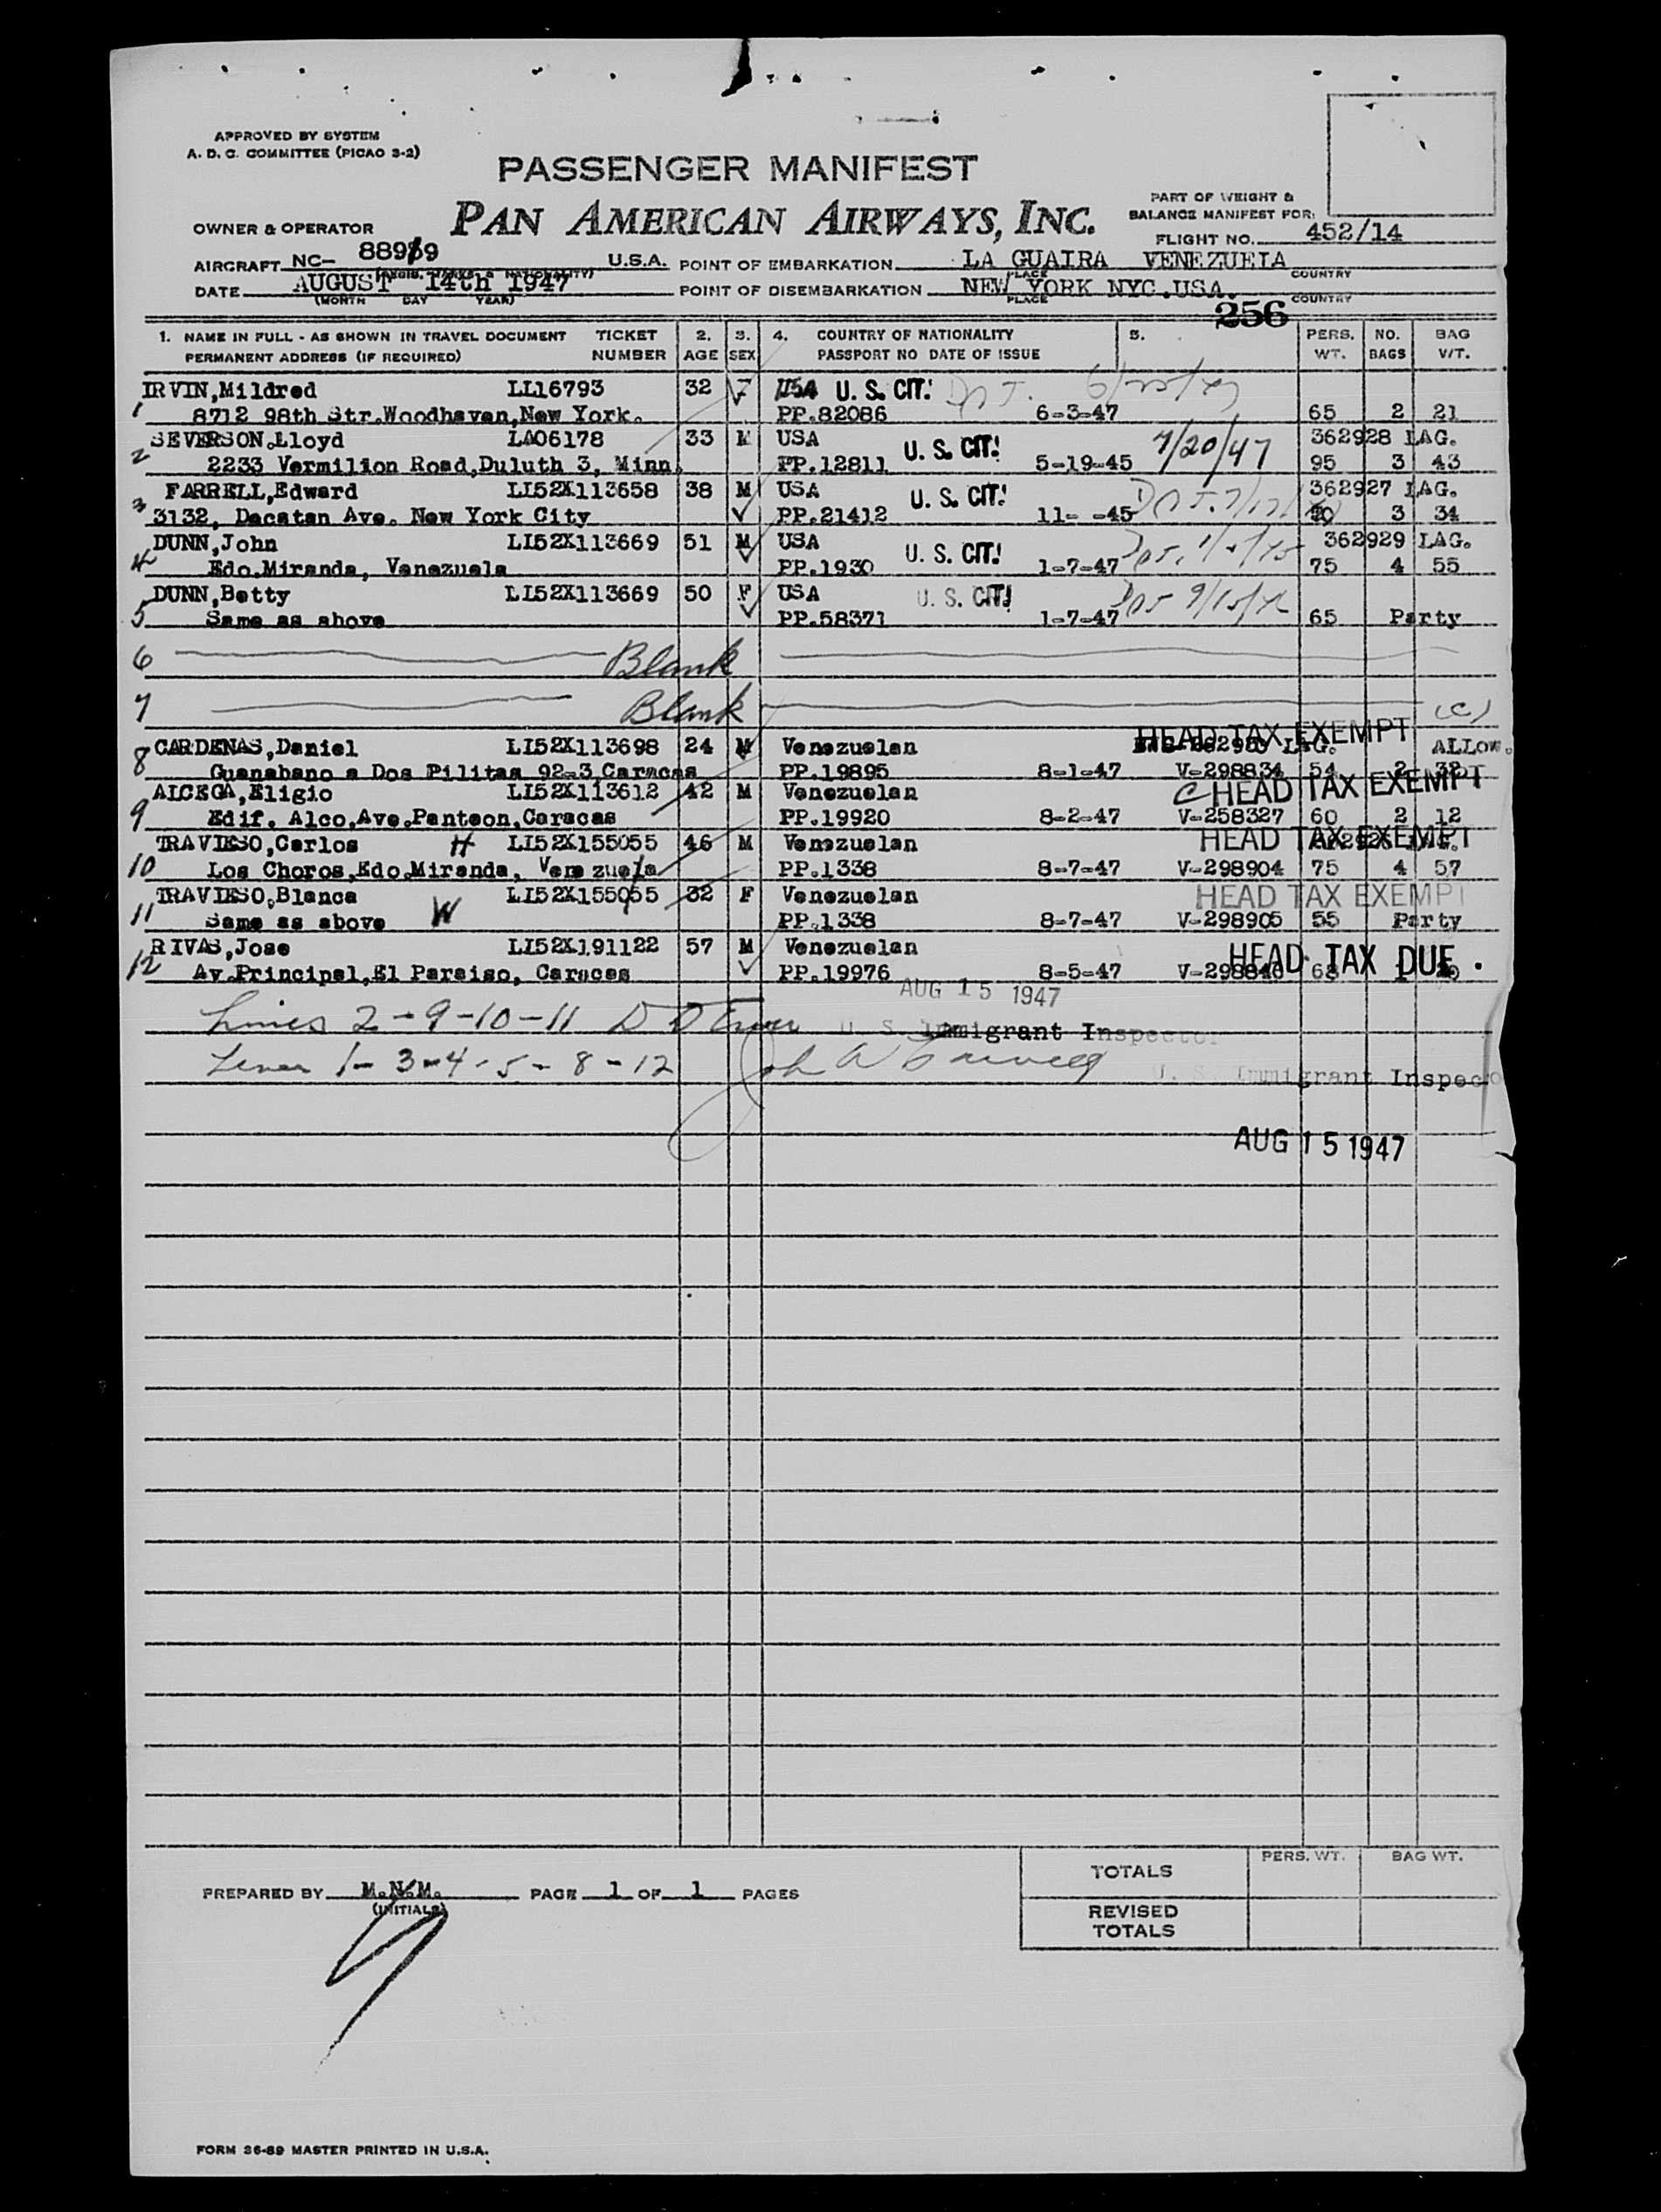 APPROVED BY SYSTEM
A. D. C. COMMITTEE (PICAO 3-2)
PASSENGER MANIFEST
PAN AMERICAN AIRWAYS, INC.
PART OF WEIGHT &
BALANCE MANIFEST FOR:
OWNER & OPERATOR
FLIGHT NO. 452/14
AIRCRAFT NC- U.S.A. POINT OF EMBARKATION LA GUAIRA VENEZUELA
(REGIS. MARKS & NATIONALITY) PLACE COUNTRY
DATE AUGUST 14th 1947 POINT OF DISEMBARKATION NEW YORK NYC.USA.
(MONTH DAY YEAR) PLACE COUNTRY
256
1. NAME IN FULL - AS SHOWN IN TRAVEL DOCUMENT TICKET 2. 3. 4. COUNTRY OF NATIONALITY 5. PERS. NO. BAG
PERMANENT ADDRESS (IF REQUIRED) NUMBER AGE SEX PASSPORT NO DATE OF ISSUE WT. BAGS WT.
IRVIN,Mildred LL16793 32 F USA U. S. CIT.
1 8712 98th Str.Woodhaven,New York. PP.82086 6-3-47 65 2 21
SEVERSON,Lloyd LA06178 33 M USA U. S. CIT. 7/20/47 362928 LAG.
2 2233 Vermilion Road,Duluth 3, Minn. PP.12811 5-19-45 95 3 43
FARRELL,Edward LI52X113658 38 M USA U. S. CIT. 362927 LAG.
3 3132, Decatan Ave. New York City PP.21412 11- -45 3 34
DUNN,John LI52X113669 51 M USA U. S. CIT. 362929 LAG.
4 Edo.Miranda, Venezuela PP.1930 1-7-47 75 4 55
DUNN,Betty LI52X113669 50 F USA U. S. CIT.
5 Same as above PP.58371 1-7-47 65 Party
6 Blank
7 Blank (C)
HEAD TAX EXEMPT
8 CARDENAS,Daniel LI52X113698 24 M Venezuelan LAG. ALLOW.
Guanabano a Dos Pilitas 92-3,Caracas PP.19895 8-1-47 V-298834 54 2 32
C HEAD TAX EXEMPT
ALCEGA,Eligio LI52X113612 42 M Venezuelan
9 Edif. Alco,Ave.Panteon,Caracas PP.19920 8-2-47 V-258327 60 2 12
HEAD TAX EXEMPT
TRAVIESO,Carlos H LI52X155055 46 M Venezuelan
10 Los Choros,Edo.Miranda, Venezuela PP.1338 8-7-47 V-298904 75 4 57
HEAD TAX EXEMPT
TRAVIESO,Blanca LI52X155055 32 F Venezuelan
11 Same as above W PP.1338 8-7-47 V-298905 55 Party
RIVAS,Jose LI52X191122 57 M Venezuelan HEAD TAX DUE.
12 Av.Principal,El Paraiso, Caracas PP.19976 8-5-47
AUG 15 1947
Lines 2-9-10-11 U. S. Immigrant Inspector
Lines 1-3-4-5-8-12 John U. S. Immigrant Inspector
AUG 15 1947
TOTALS PERS. WT. BAG WT.
PREPARED BY M.N.M. PAGE 1 OF 1 PAGES
(INITIALS)
REVISED
TOTALS
FORM 36-89 MASTER PRINTED IN U.S.A.